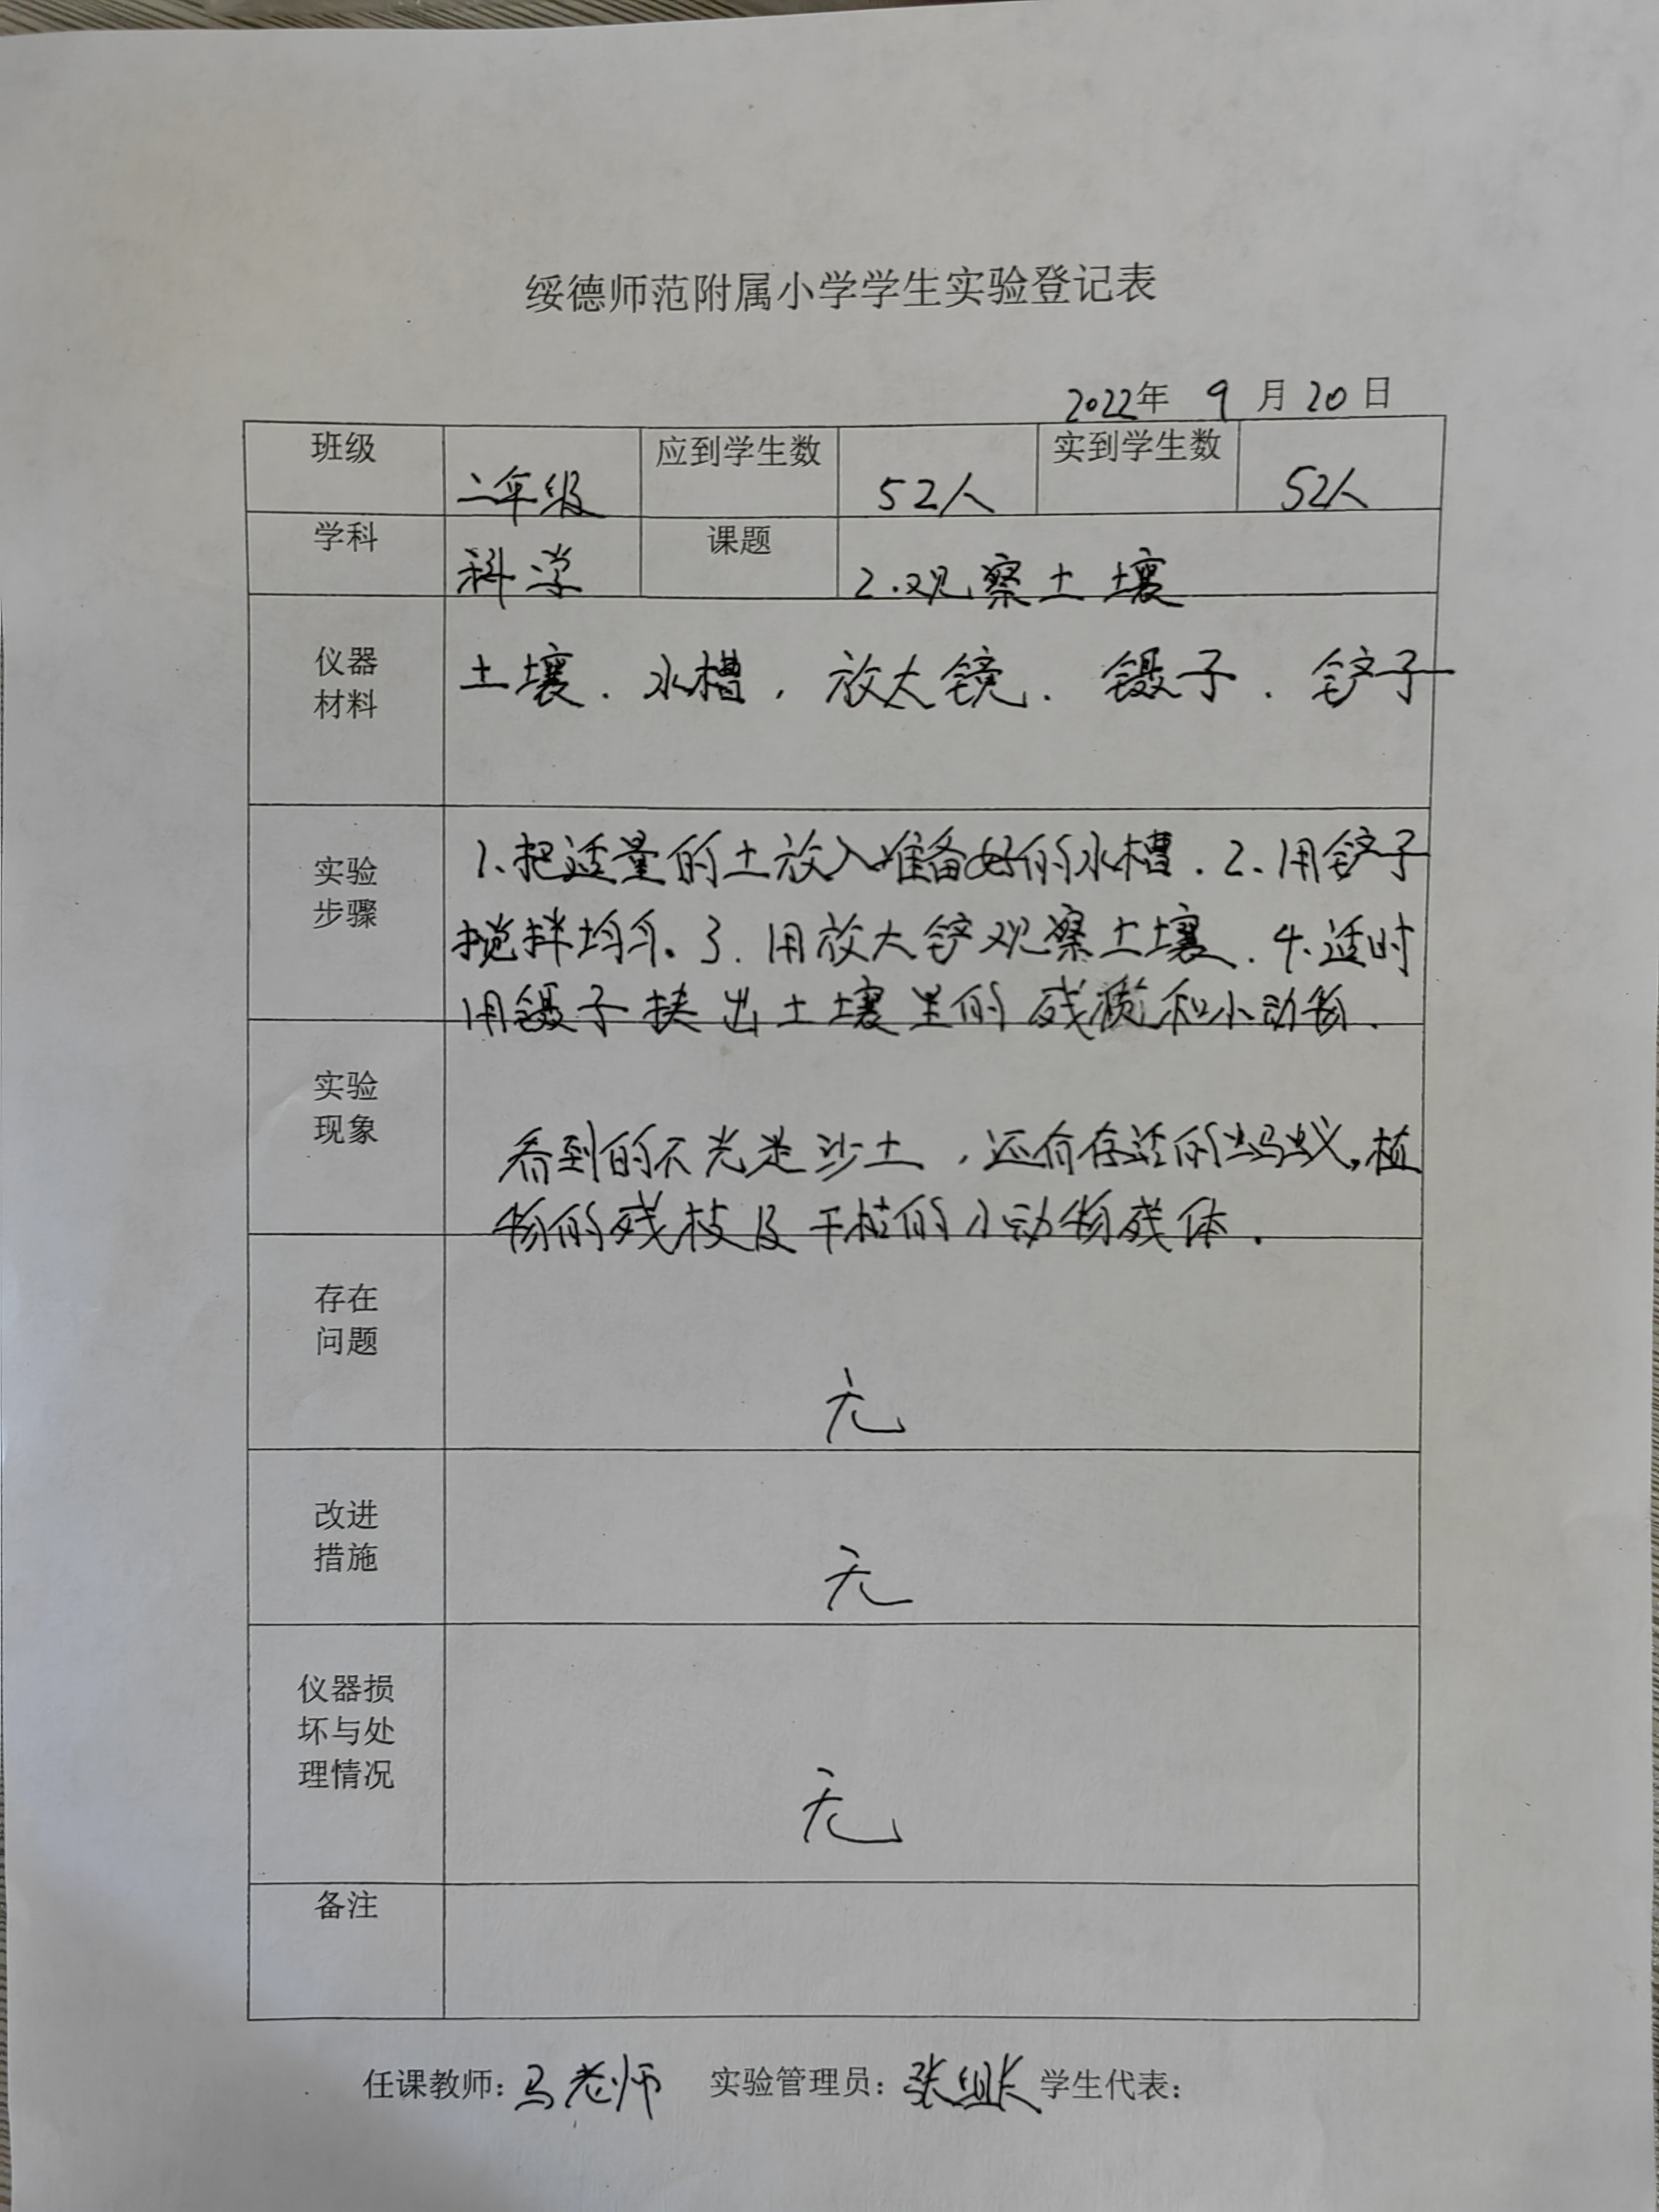 绥德师范附属小学学生实验登记表
2022年 9 月 20 日
班级 二年级 应到学生数 52人 实到学生数 52人
学科 科学 课题 2.观察土壤
仪器
材料
土壤.水槽,放大镜.镊子.铲子
实验
步骤
1、把适量的土放入准备好的水槽.2、用铲子
搅拌均匀。3.用放大铲观察土壤.4、适时
用镊子挟出土壤里的残渣和小动物.
实验
现象
看到的不光是沙土,还有存活的蚂蚁,植
物的残枝及干枯的小动物残体.
存在
问题
无
改进
措施
无
仪器损
坏与处
理情况
无
备注
任课教师:马老师 实验管理员:张组长 学生代表: